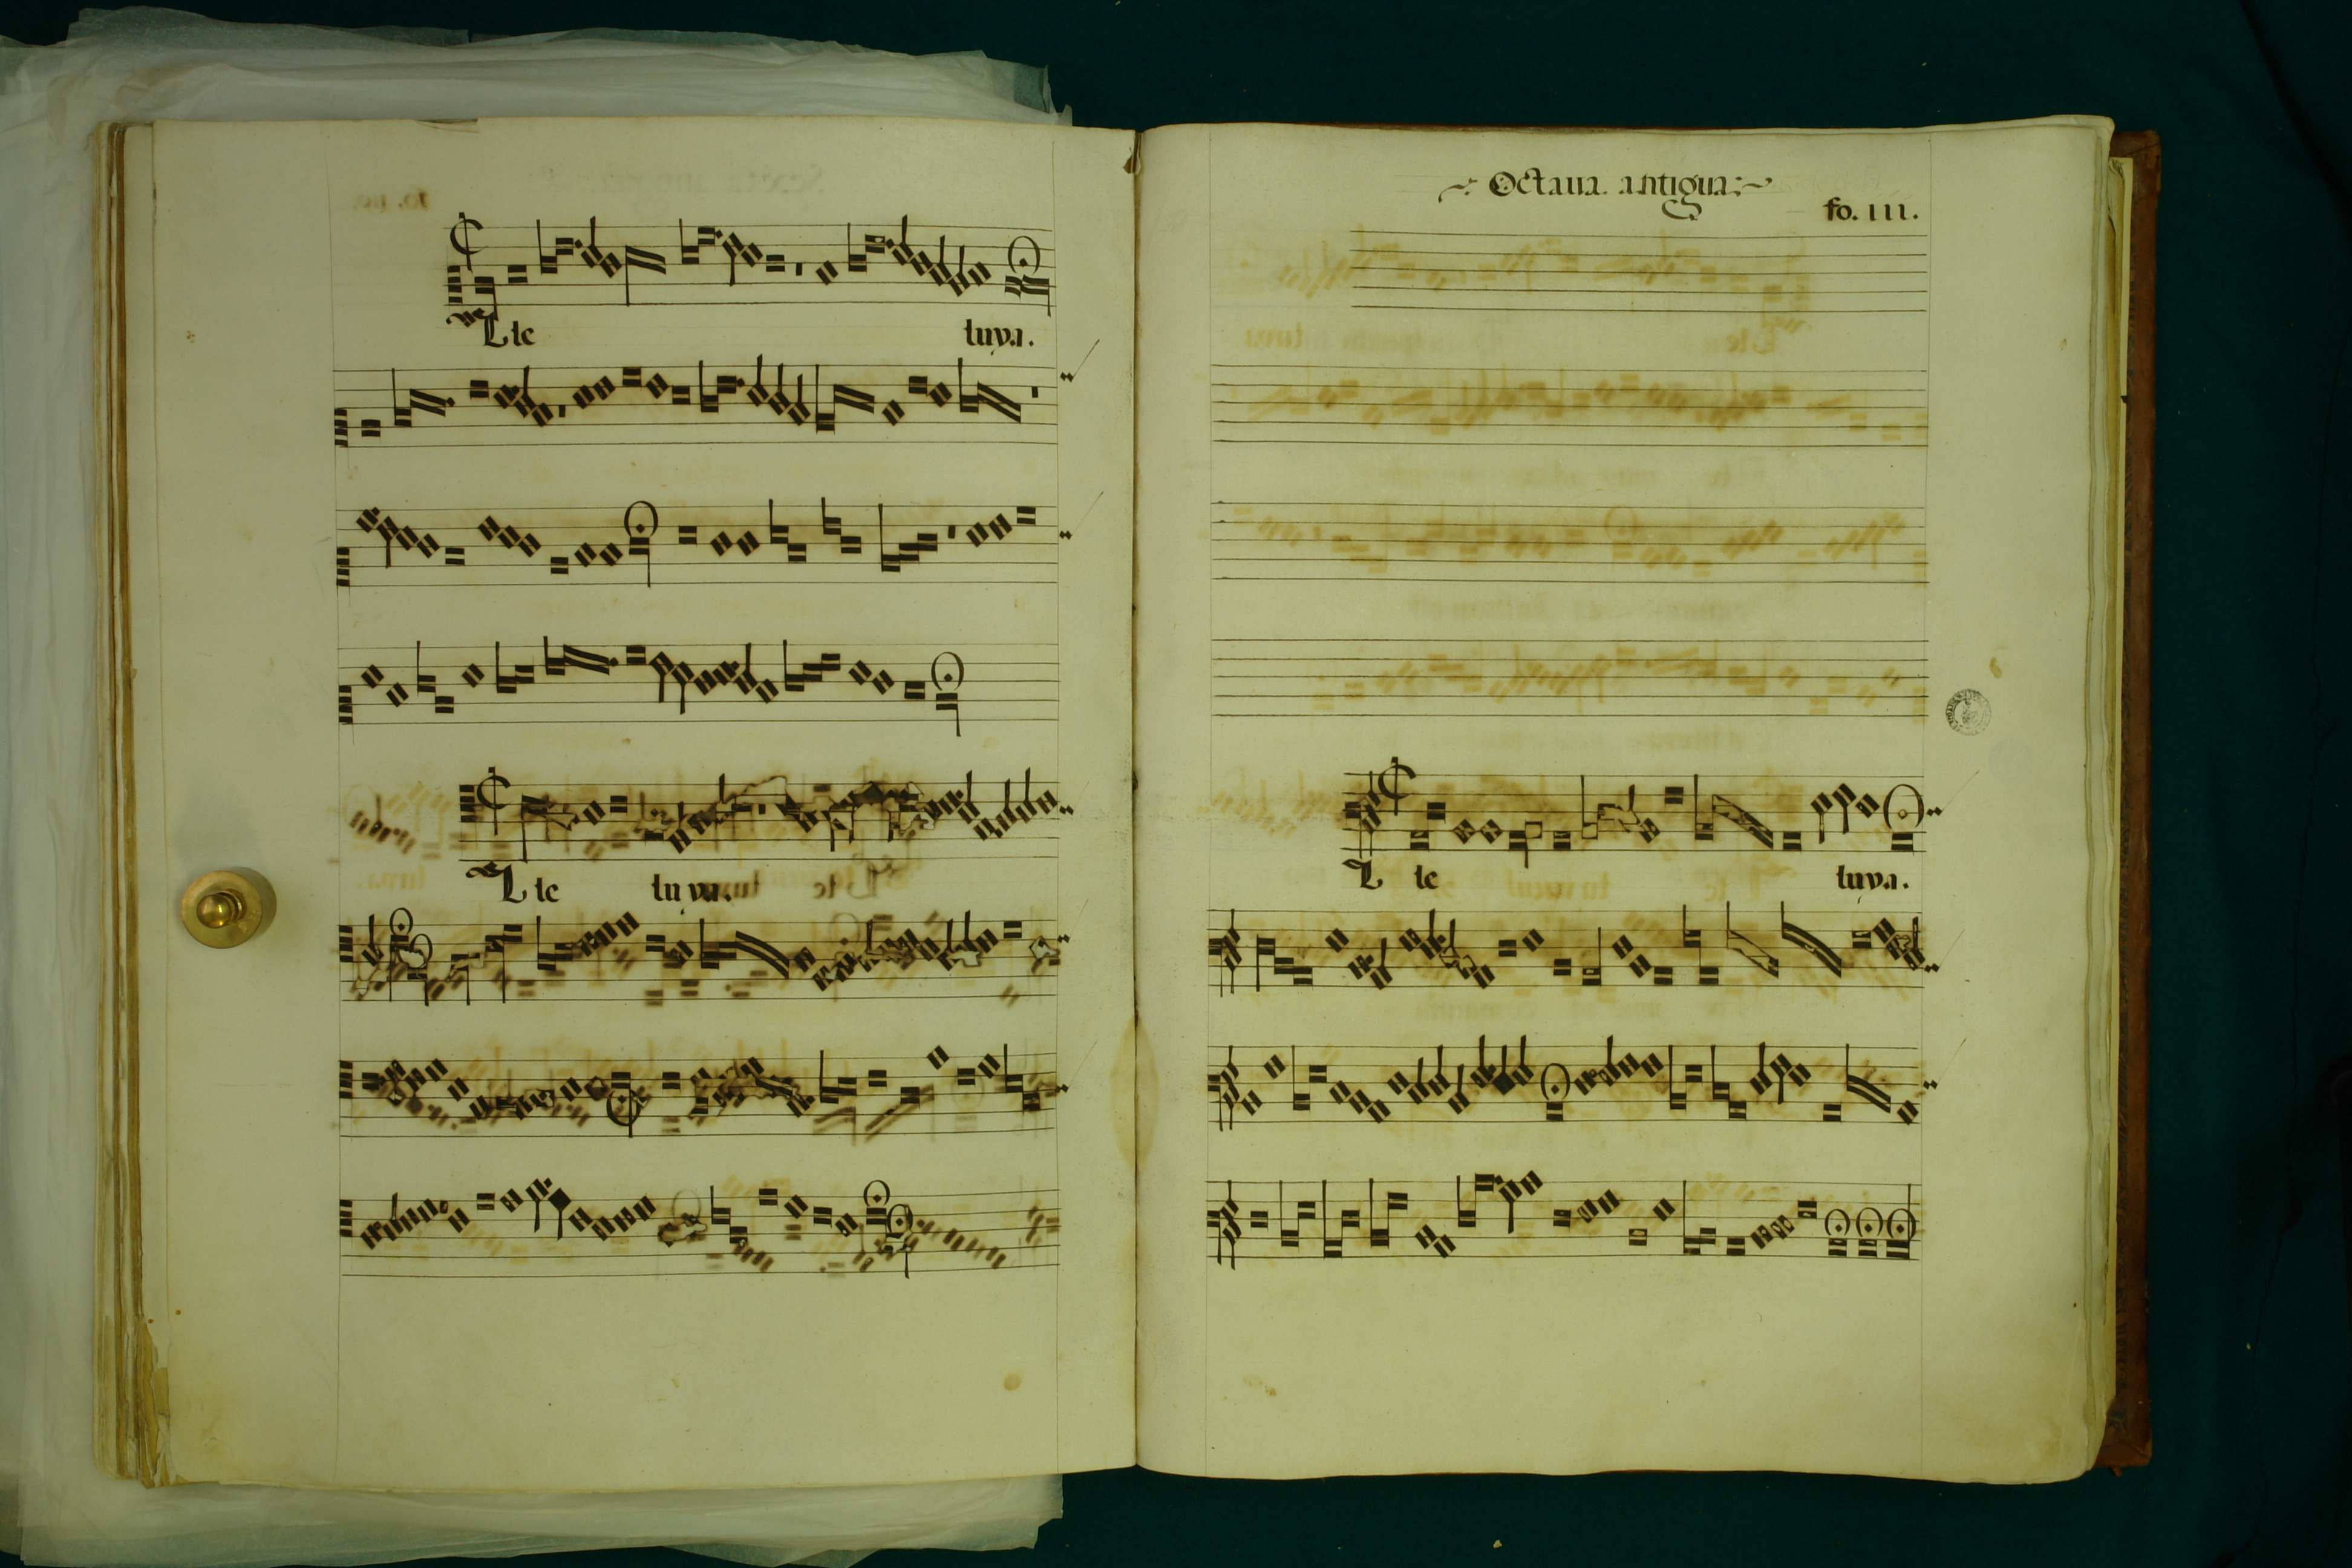 Lle luya.
Lle luya.
Octaua. antigua:
fo. III.
Lle luya.